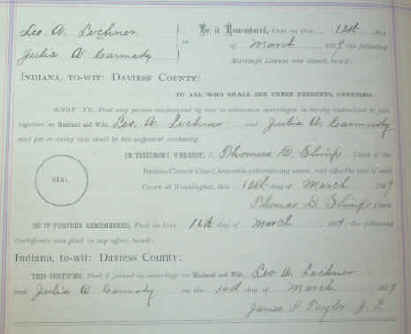 Leo A. Lechner
Julia A Carmody
to
Be it Remembered, That on this 12th day
of March the following
Marriage License was issued, to-wit:
INDIANA, TO-WIT: DAVIESS COUNTY:
TO ALL WHO SHALL SEE THESE PRESENTS, GREETING:
KNOW YE, That any person empowered by law to solemnize marriages is hereby authorized to join
together as Husband and Wife Leo A. Lechner and Julia A. Carmody
and for so doing this shall be his sufficient authority.
SEAL
IN TESTIMONY WHEREOF, I, Thomas D. Slimp Clerk of the
Daviess Circuit Court, hereunto subscribe my name, and affix the seal of said
Court at Washington, this 12th day of March
Thomas D. Slimp Clerk
BE IT FURTHER REMEMBERED, That on this 16th day of March the following
Certificate was filed in my office, to-wit:
Indiana, to-wit: Daviess County:
THIS CERTIFIES, That I joined in marriage as Husband and Wife Leo A. Lechner
and Julia A Carmody on the day of March
James P. Taylor J. P.